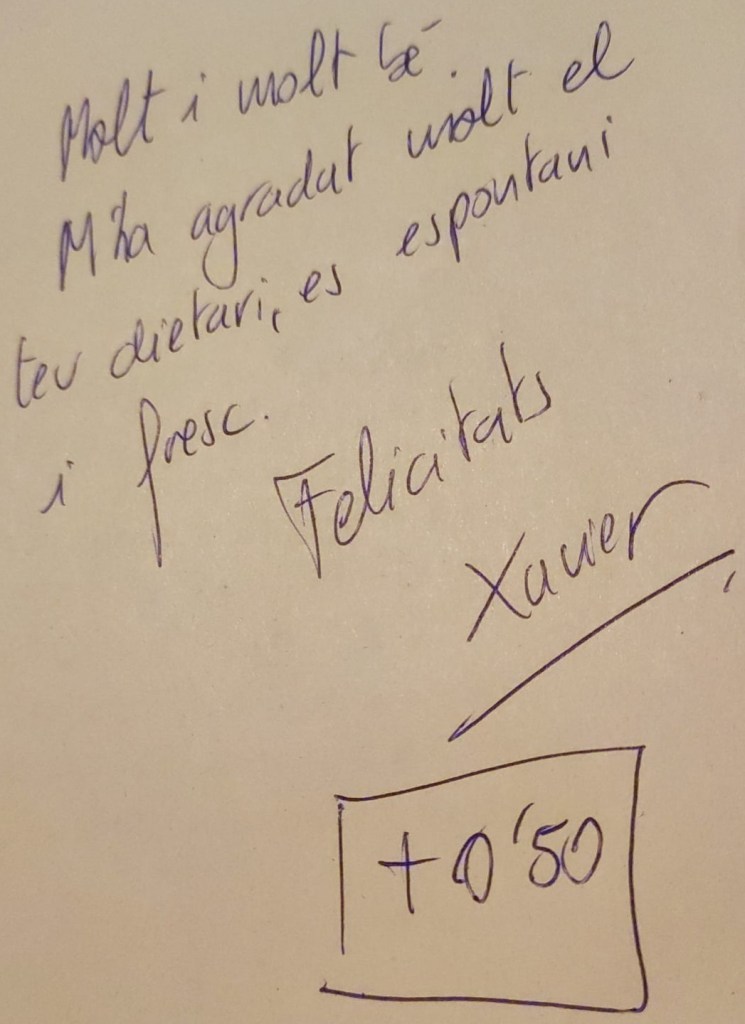 Molt i molt bé.
M'ha agradat molt el
teu dietari, es espontani
i fresc.
Felicitats
Xavier
+0'50